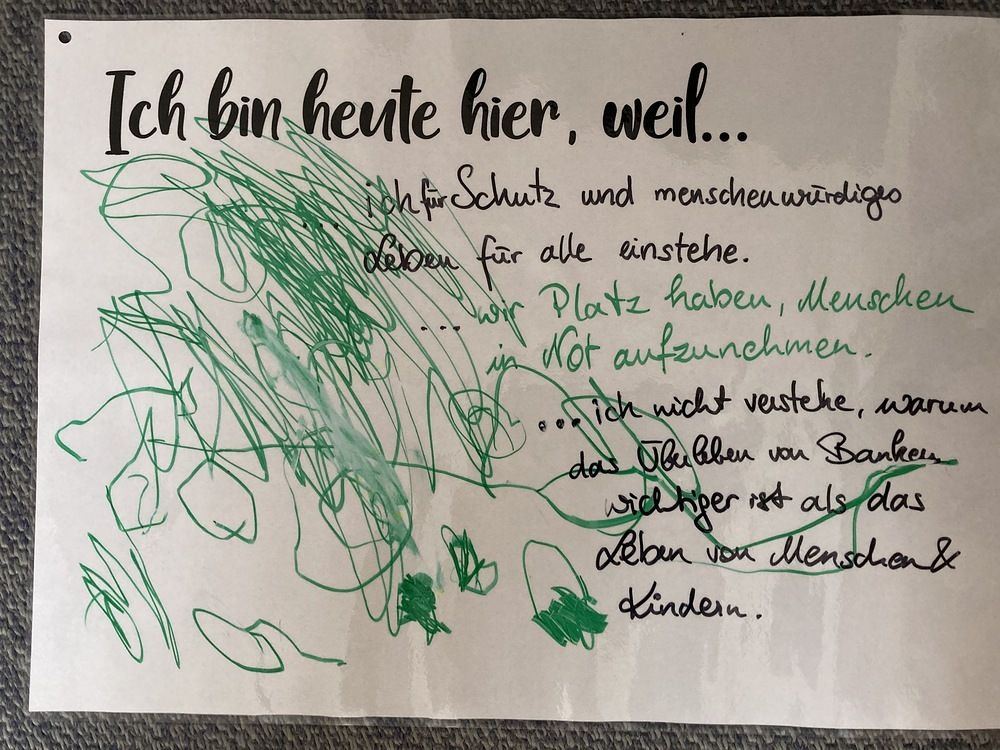 Ich bin heute hier, weil...
... ich für Schutz und menschenwürdiges
Leben für alle einstehe.
... wir Platz haben, Menschen
in Not aufzunehmen.
... ich nicht verstehe, warum
das Überleben von Banken
wichtiger ist als das
Leben von Menschen &
Kindern.